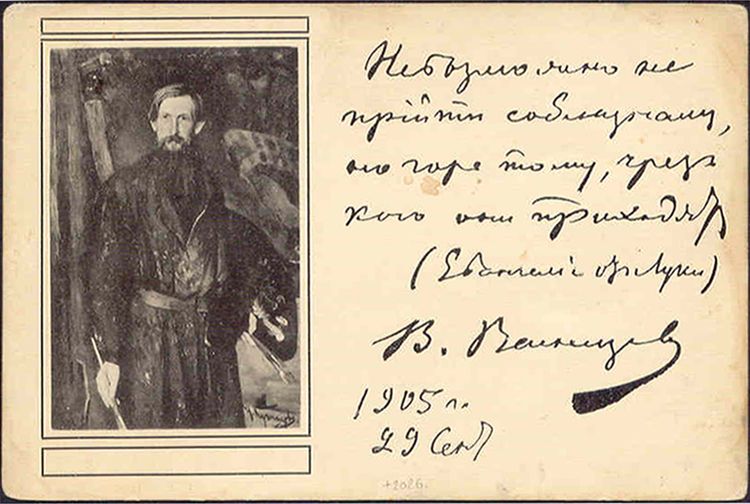 Невозможно не
прійти соблазнамъ,
но горе тому, чрезъ
кого они приходятъ
(Евангеліе отъ Луки)
В. Васнецовъ
1905 г.
29 Сент
+2026.